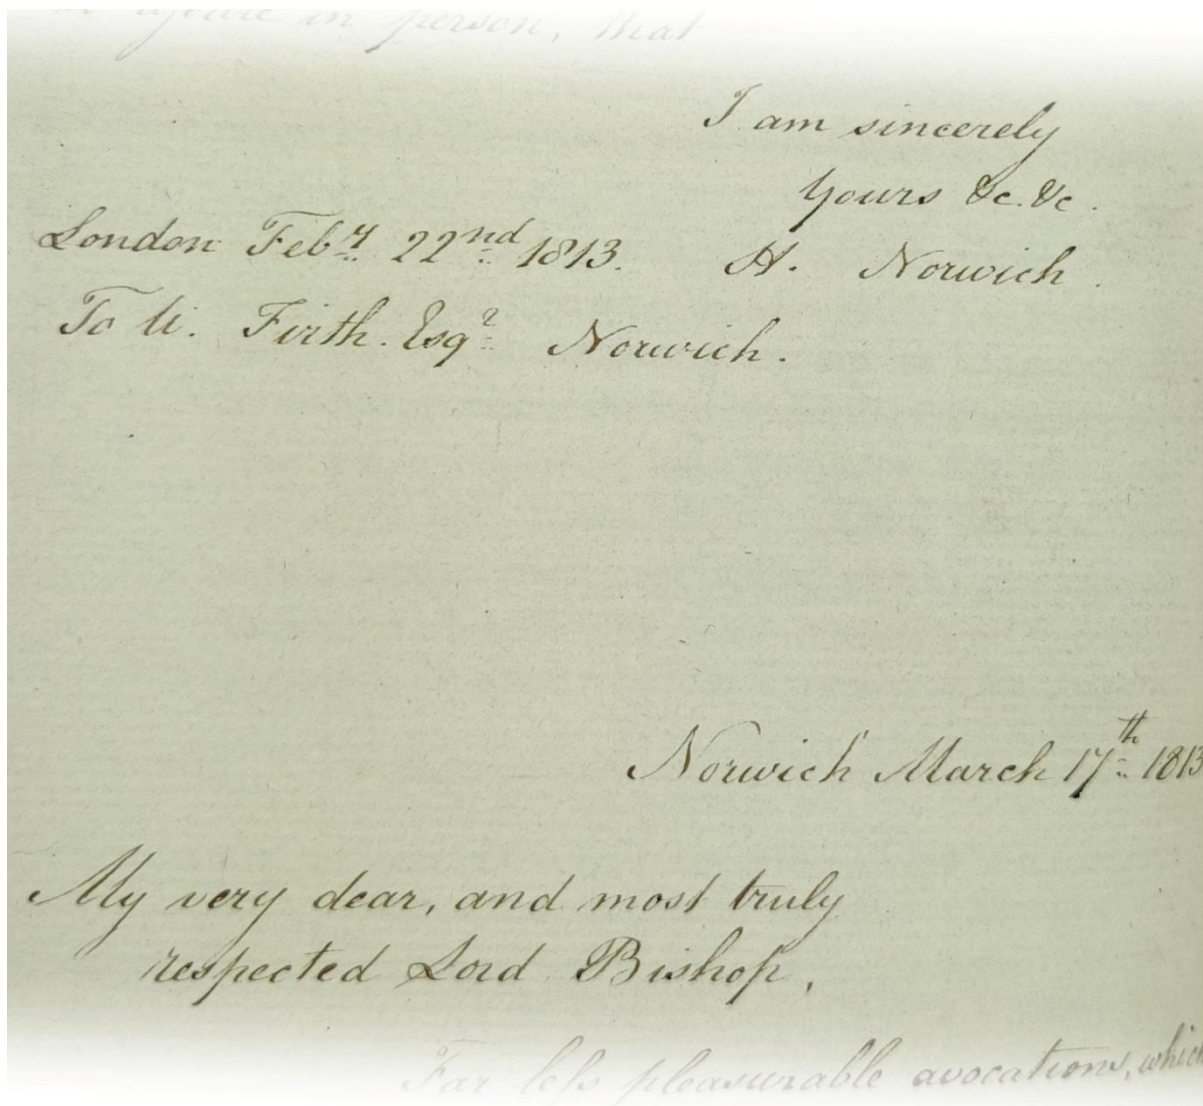 in person, that
I am sincerely
Yours &c. &c.
London Feby 22nd 1813. H. Norwich.
To W. Firth. Esqr Norwich.
Norwich March 17th 1813
My very dear, and most truly
respected Lord Bishop,
Far less pleasurable avocations, which